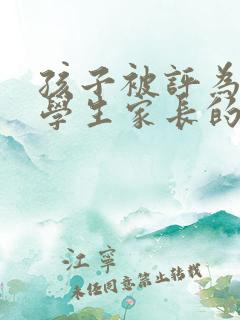 孩子被評為
學生家長的
江寧
未经同意禁止转载